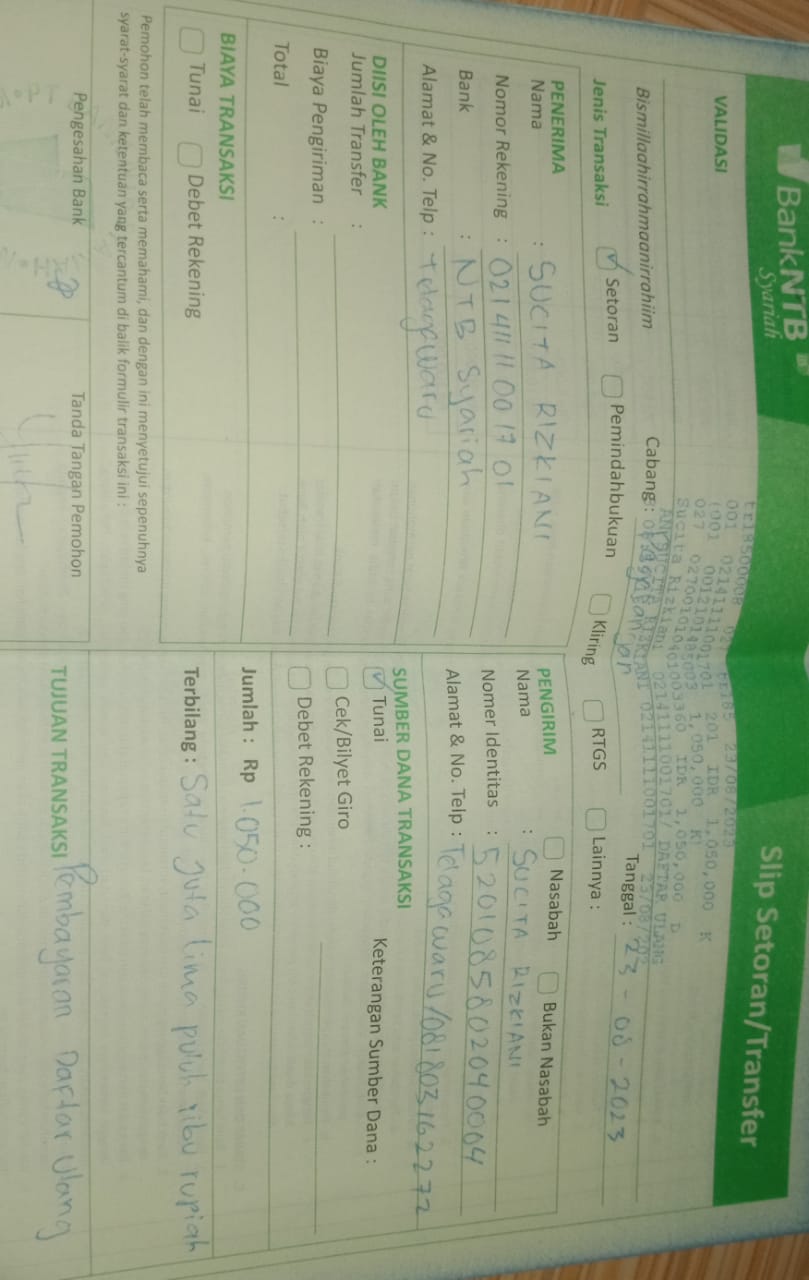 BankNTB
Syariah
Slip Setoran/Transfer
VALIDASI
tr18500008 023 tr185 23/08/2023
001 02141111001701 201 IDR 1,050,000 K
1,050,000 K
027 IDR 1,050,000 D
Sucita Rizkiani 02141111001701/ DAFTAR ULANG
AN SUCITA RIZKIANI 02141111001701 23/08/202
Bismillaahirrahmaanirrahiim
Cabang :
Tanggal : 23 - 08 - 2023
Jenis Transaksi
Setoran
Pemindahbukuan
Kliring
RTGS
Lainnya :
PENERIMA
Nama : SUCITA RIZKIANI
Nomor Rekening : 02141111001701
Bank : NTB Syariah
Alamat & No. Telp : Telagawaru
PENGIRIM
Nasabah
Bukan Nasabah
Nama : SUCITA RIZKIANI
Nomer Identitas : 5201085802040004
Alamat & No. Telp : Telagawaru/081803162272
DIISI OLEH BANK
Jumlah Transfer :
Biaya Pengiriman :
Total :
SUMBER DANA TRANSAKSI
Tunai
Keterangan Sumber Dana :
Cek/Bilyet Giro
Debet Rekening :
BIAYA TRANSAKSI
Tunai
Debet Rekening
Jumlah : Rp 1.050.000
Terbilang : Satu Juta lima puluh ribu rupiah
Pemohon telah membaca serta memahami, dan dengan ini menyetujui sepenuhnya
syarat-syarat dan ketentuan yang tercantum di balik formulir transaksi ini :
Pengesahan Bank
Tanda Tangan Pemohon
TUJUAN TRANSAKSI Pembayaran Daftar Ulang